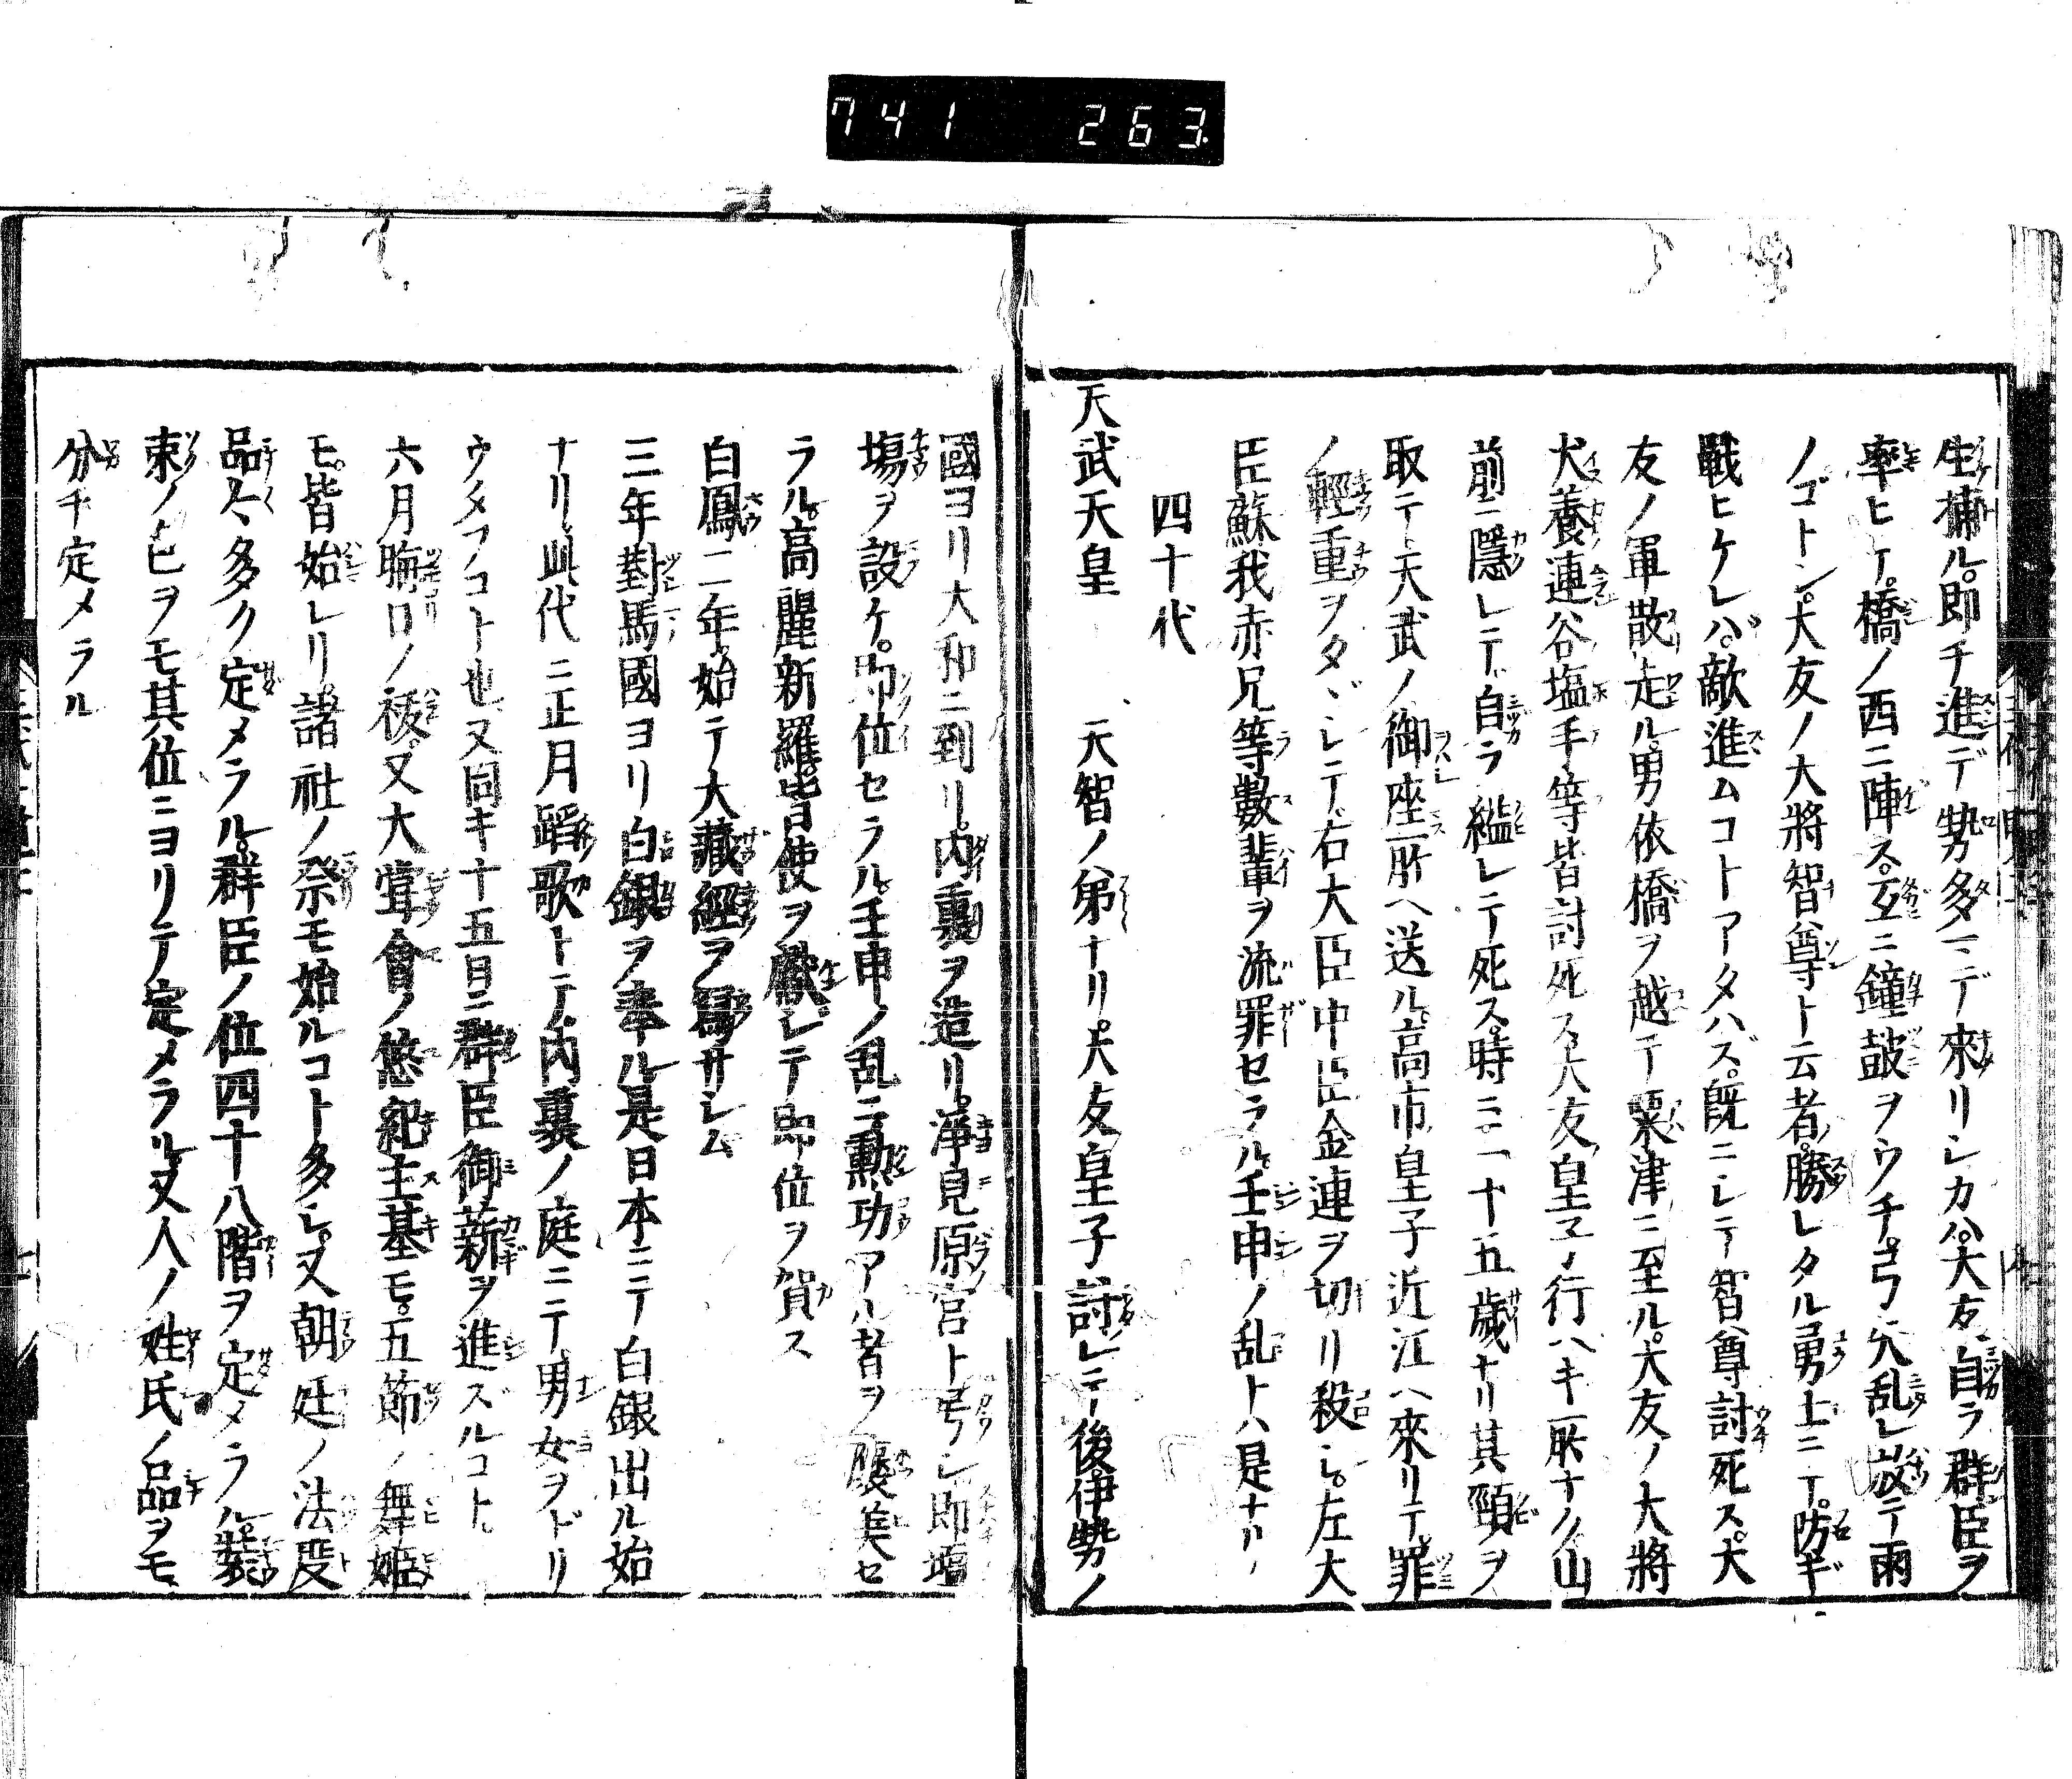 741 263
生捕ル。即チ進デ勢多マデ來リシカバ。大友、自ラ群臣ヲ
率ヒテ。橋ノ西ニ陣ス。互ニ鐘鼓ヲウチ。弓矢乱レ放テ雨
ノゴトシ。大友ノ大將智尊ト云者。勝レタル勇士ニテ。防ギ
戰ヒケレバ。敵進ムコトアタハズ。既ニシテ智尊討死ス。大
友ノ軍散走ル。男依橋ヲ越テ粟津ニ至ル。大友ノ大將
犬養連谷塩手等皆討死ス。大友皇子ノ行ベキ所ナク。山
前ニ隱レテ、自ラ縊レテ死ス。時ニ二十五歲ナリ。其頸ヲ
取テ、天武ノ御座所ヘ送ル。高市皇子近江ヘ來リテ、罪
ノ輕重ヲタヾシテ、右大臣中臣金連ヲ切リ殺シ。左大
臣蘇我赤兄等數輩ヲ流罪セラル。壬申ノ乱トハ是ナリ
四十代
天武天皇 天智ノ弟ナリ。大友皇子討シテ後、伊勢ノ
國ヨリ大和ニ到リ。内裏ヲ造リ。淨見原宮ト号シ。即壇
塲ヲ設ケ。即位セラル。壬申ノ乱ニ勲功アル者ヲ襃美セ
ラル。高麗新羅。皆使ヲ獻シテ即位ヲ賀ス
白鳳二年。始テ大藏經ヲ寫サシム
三年對馬國ヨリ白銀ヲ奉ル。是日本ニテ白銀出ル始
ナリ。此代ニ正月蹈歌トテ、内裏ノ庭ニテ、男女ヲドリ
ウタフコト也。又同キ十五日ニ群臣御薪ヲ進ズルコト。
六月晦日ノ祓。又大甞會ノ悠紀主基モ。五節ノ舞姬
モ。皆始レリ。諸社ノ祭モ始ルコト多シ。又朝廷ノ法度
品々多ク定メラル。群臣ノ位四十八階ヲ定メラル。裝
束ノ色ヲモ其位ニヨリテ定メラル。又人ノ姓氏ノ品ヲモ、
分チ定メラル